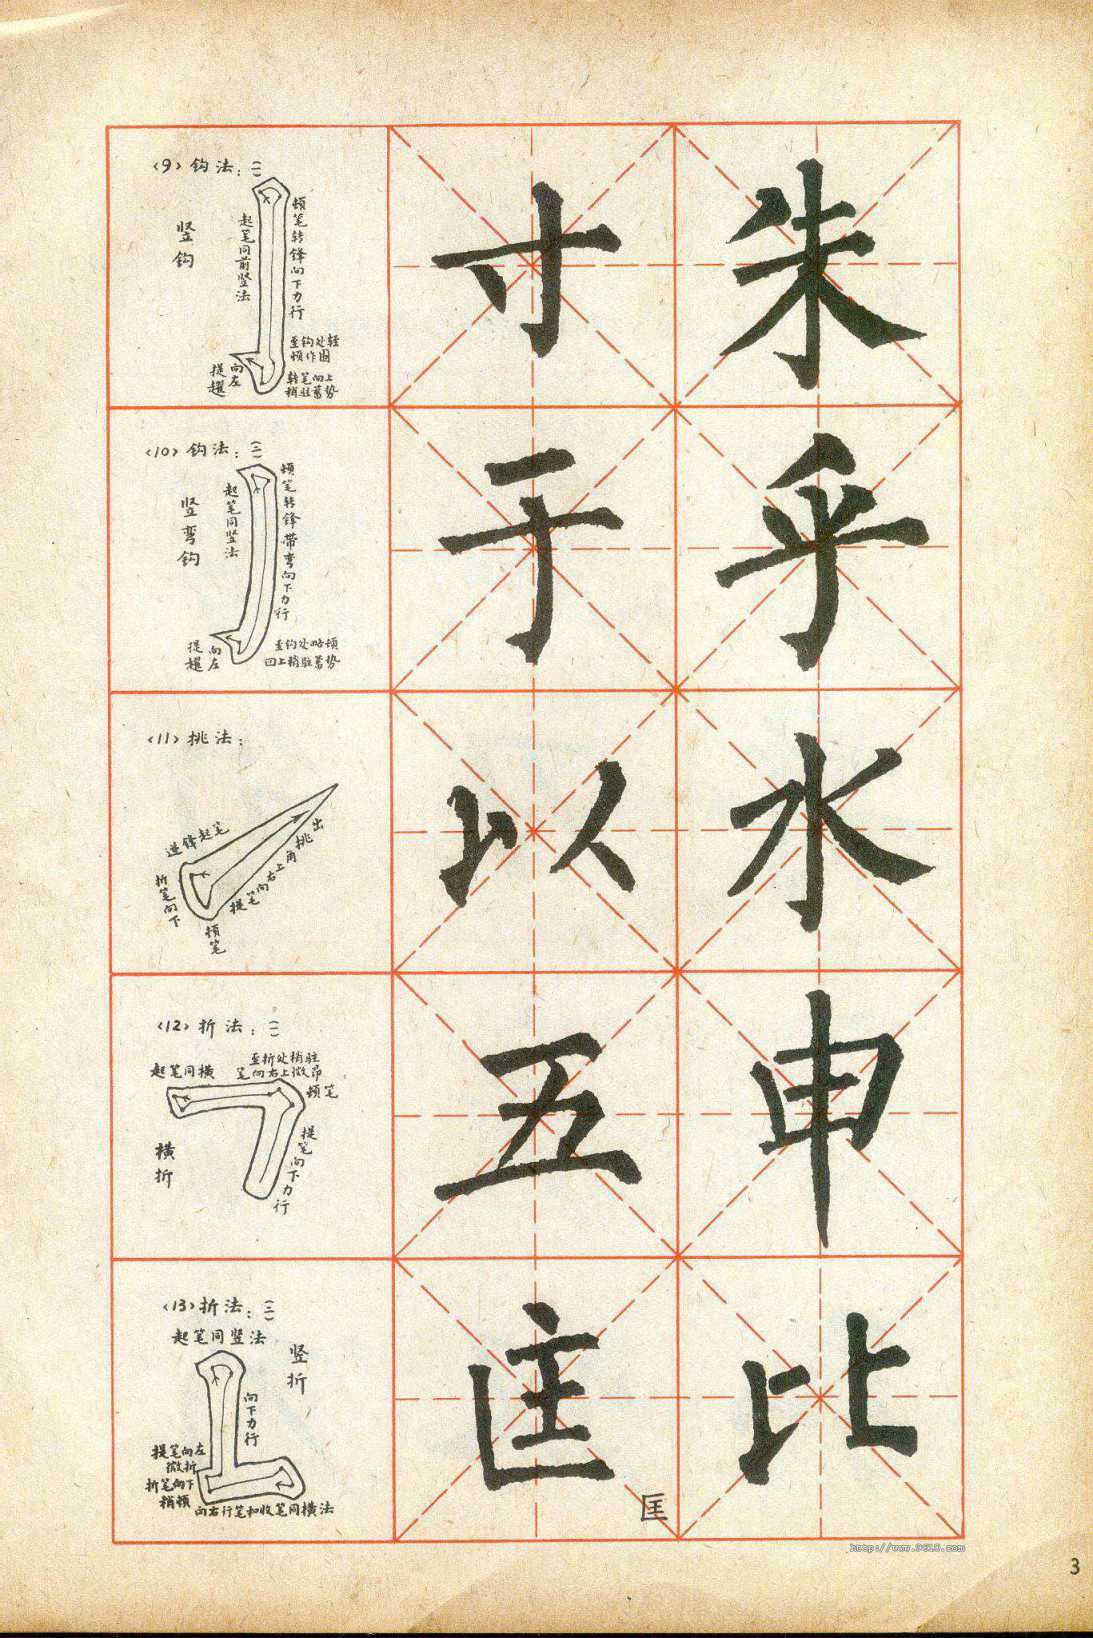 〈9〉钩法：㈠
竖钩
起笔同前竖法
顿笔转锋向下力行
至钩处轻顿作围
转笔向上稍驻蓄势
向左提趯
寸
朱
〈10〉钩法：㈡
竖弯钩
起笔同竖法
顿笔转锋带弯向下力行
至钩处略顿
回上稍驻蓄势
向左提趯
于
乎
〈11〉挑法：
逆锋起笔
折笔向下
顿笔
提笔向右上角挑出
以
水
〈12〉折法：㈠
起笔同横
至折处稍驻
笔向右上微昂
顿笔
横折
提笔向下力行
五
申
〈13〉折法：㈡
起笔同竖法
竖折
向下力行
提笔向左微折
折笔向下稍顿
向右行笔和收笔同横法
匡
匡
比
http://www.9610.com
3